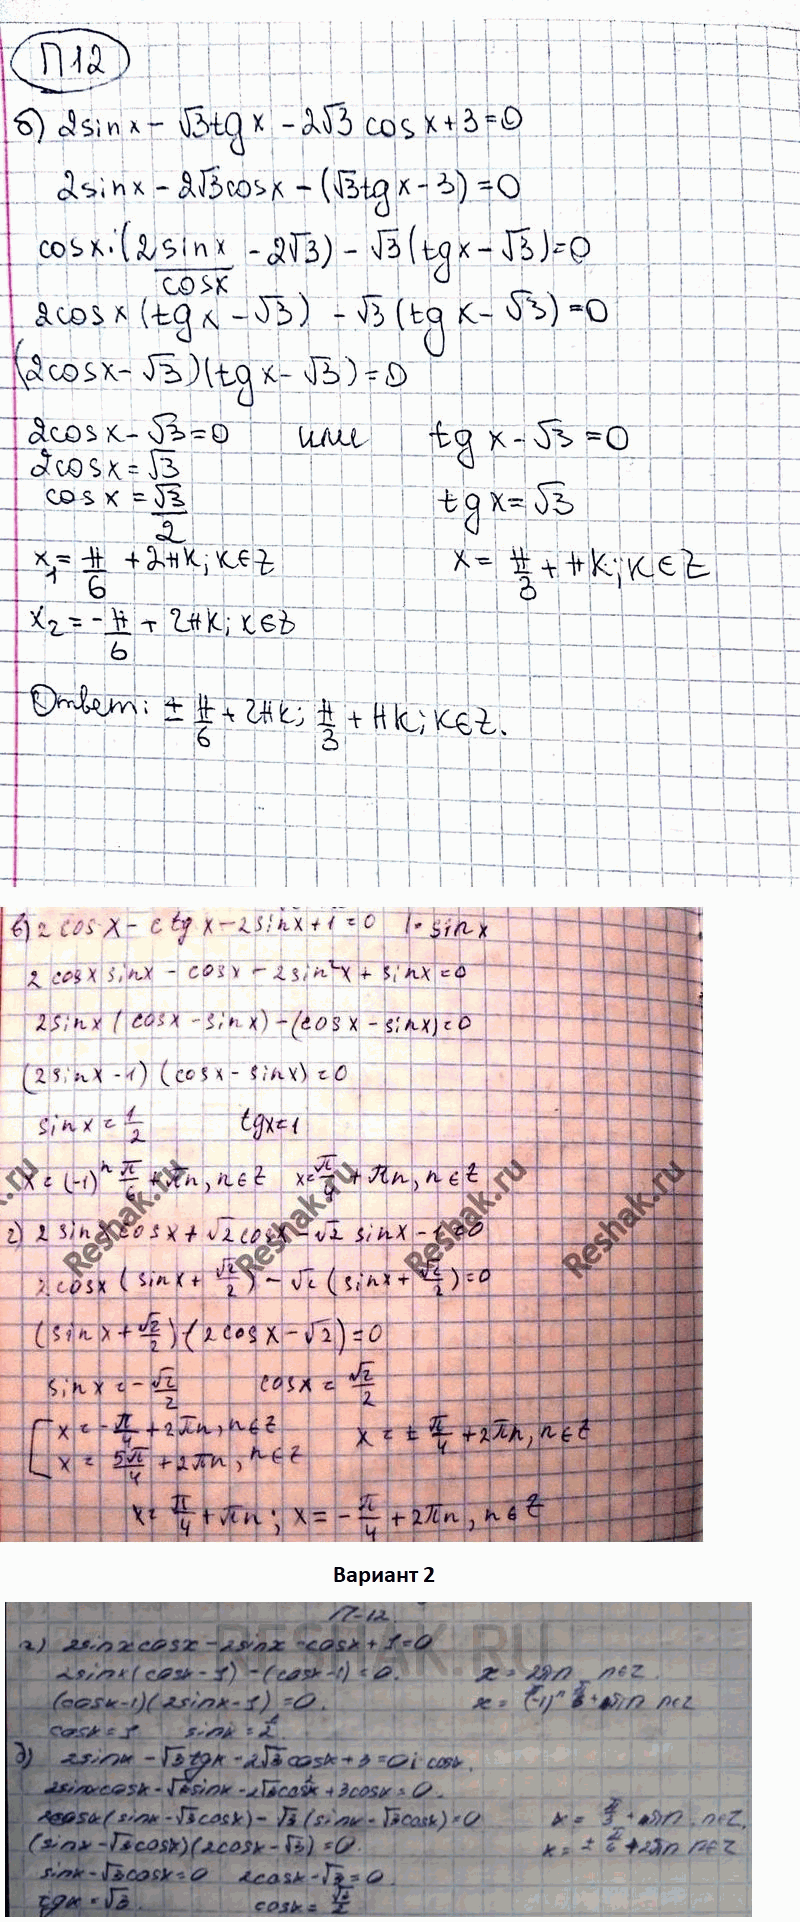 П12
б) 2sinx - √3tgx - 2√3 cosx + 3 = 0
2sinx - 2√3cosx - (√3tgx - 3) = 0
cosx·(2 sinx/cosx - 2√3) - √3(tgx - √3) = 0
2cosx(tgx - √3) - √3(tgx - √3) = 0
(2cosx - √3)(tgx - √3) = 0
2cosx - √3 = 0 или tgx - √3 = 0
2cosx = √3
cosx = √3/2 tgx = √3
x₁ = π/6 + 2πk; k∈Z x = π/3 + πk; k∈Z
x₂ = -π/6 + 2πk; k∈Z
Ответ: ± π/6 + 2πk; π/3 + πk; k∈Z.
в) 2cosx - ctgx - 2sinx + 1 = 0 |· sinx
2cosx sinx - cosx - 2sin²x + sinx = 0
2sinx(cosx - sinx) - (cosx - sinx) = 0
(2sinx - 1)(cosx - sinx) = 0
sinx = 1/2 tgx = 1
x = (-1)ⁿ π/6 + πn, n∈Z x = π/4 + πn, n∈Z
Reshak.ru Reshak.ru Reshak.ru Reshak.ru
г) 2sinx cosx + √2cosx - √2 sinx - 1 = 0
2cosx(sinx + √2/2) - √2(sinx + √2/2) = 0
(sinx + √2/2)·(2cosx - √2) = 0
sinx = -√2/2 cosx = √2/2
[ x = -π/4 + 2πn, n∈Z x = ± π/4 + 2πn, n∈Z
x = 5π/4 + 2πn, n∈Z
x = π/4 + πn; x = -π/4 + 2πn, n∈Z
Вариант 2
П-12.
RESHAK.RU
г) 2sinxcosx - 2sinx - cosx + 1 = 0
2sinx(cosx - 1) - (cosx - 1) = 0. x = 2πn n∈Z.
(cosx - 1)(2sinx - 1) = 0. x = (-1)ⁿ π/6 + πn n∈Z
cosx = 1 sinx = 1/2
д) 2sinx - √3tgx - 2√3cosx + 3 = 0 |· cosx.
2sinxcosx - √3sinx - 2√3cos²x + 3cosx = 0.
2cosx(sinx - √3cosx) - √3(sinx - √3cosx) = 0 x = π/3 + πn, n∈Z.
(sinx - √3cosx)(2cosx - √3) = 0. x = ± π/6 + 2πn n∈Z
sinx - √3cosx = 0 2cosx - √3 = 0.
tgx = √3. cosx = √3/2